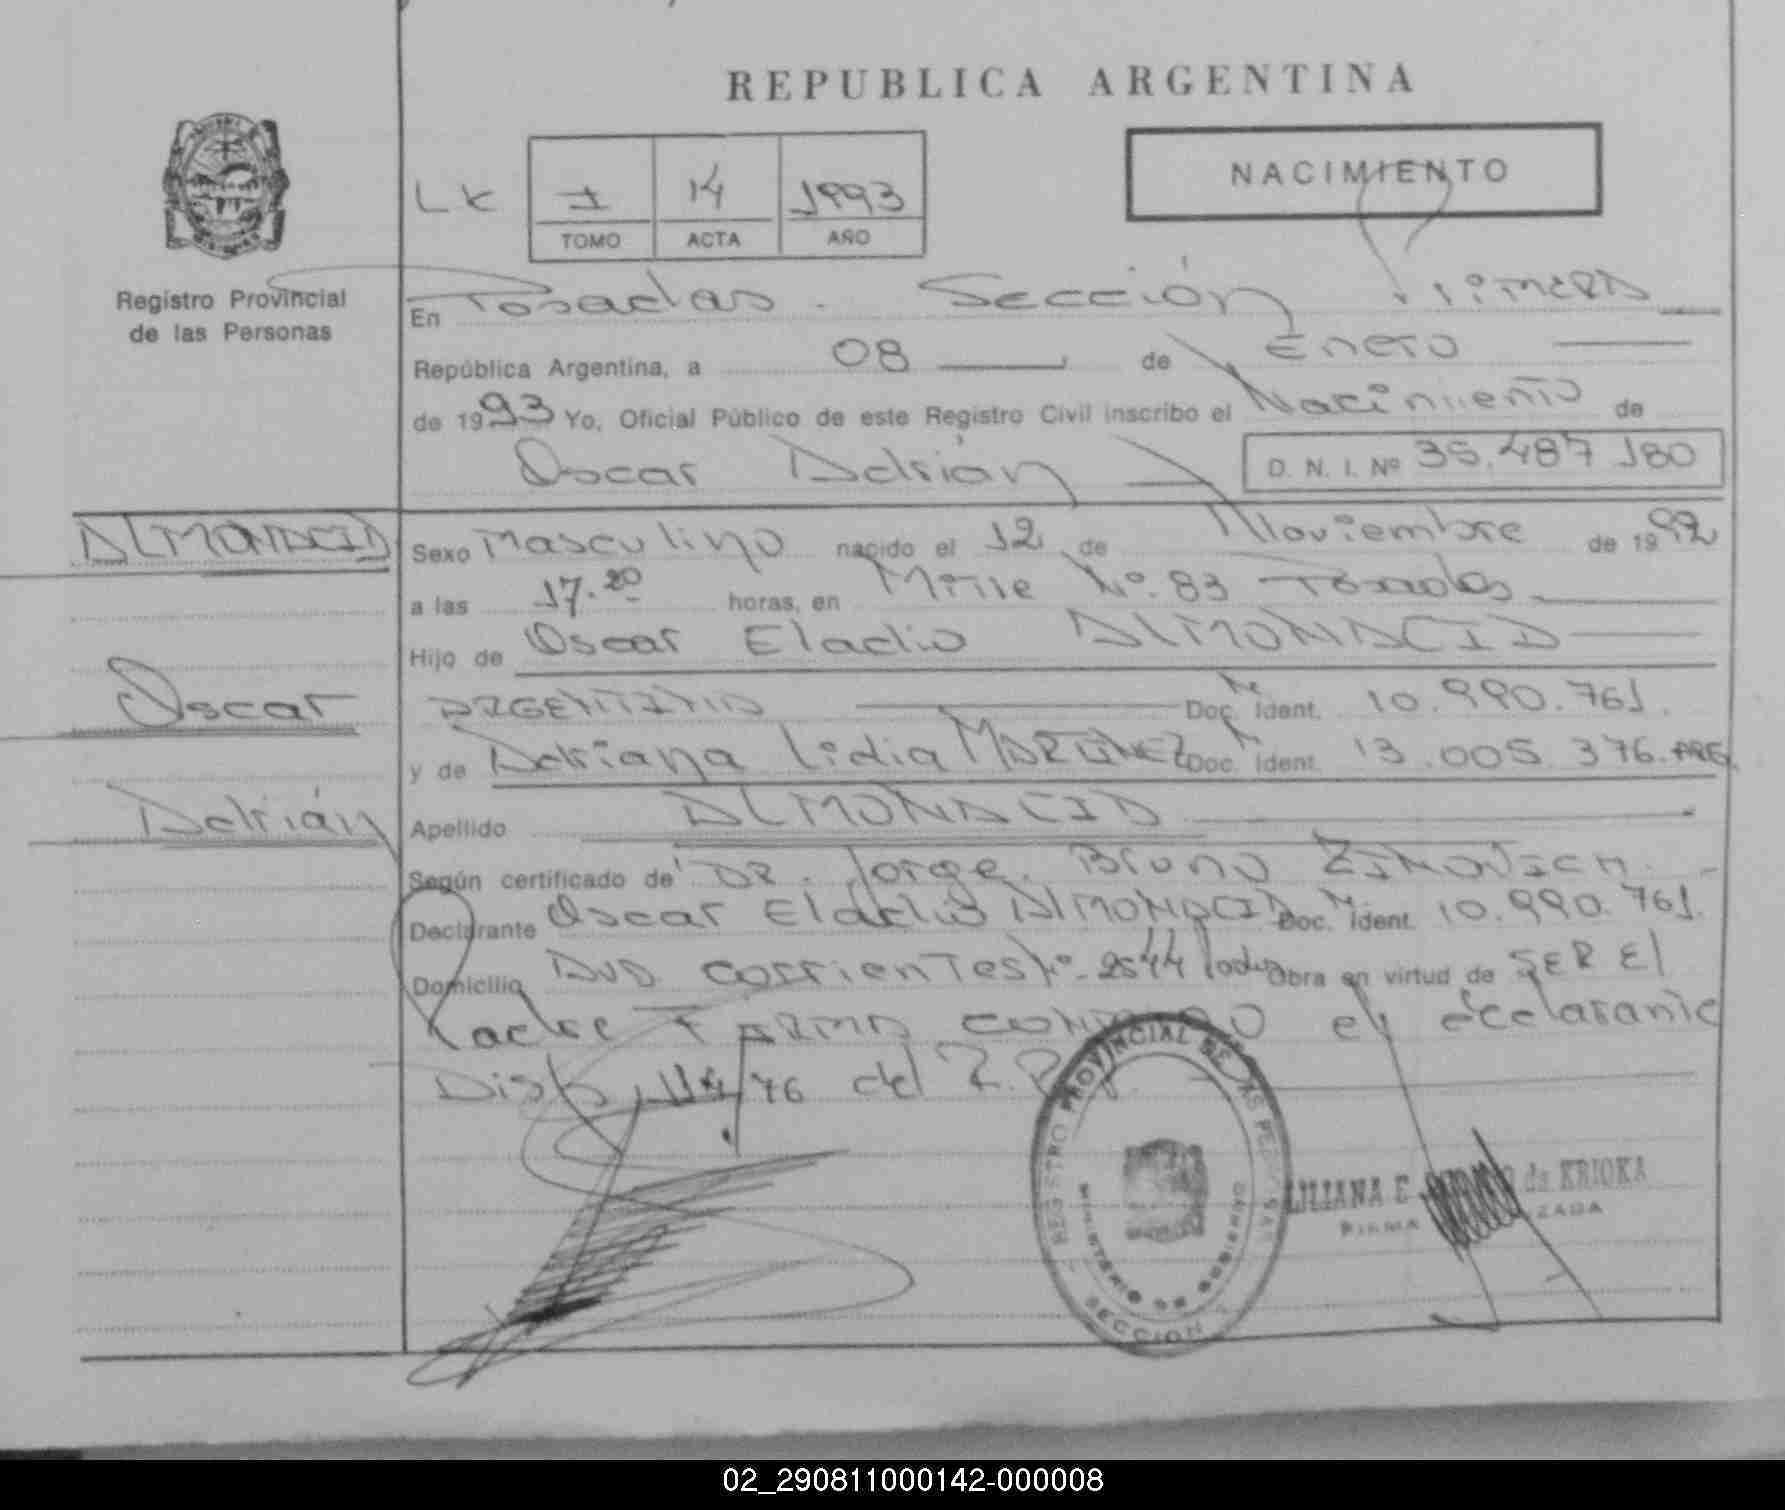 REPUBLICA ARGENTINA
NACIMIENTO
LK
1 14 1993
TOMO ACTA AÑO
Registro Provincial
de las Personas
En Posadas. Sección Primera
República Argentina, a 08 de Enero
de 1993 Yo, Oficial Público de este Registro Civil inscribo el Nacimiento de
Oscar Adrián D. N. I. Nº 35.487 180
ALMONACID
Sexo Masculino nacido el 12 de Noviembre de 1992
a las 17.20 horas, en Mitre Nº. 83 Posadas
Hijo de Oscar Eladio ALMONACID
Oscar
ARGENTINO Doc. Ident. 10.990.761.
y de Adriana Lidia MARTINEZ Doc. Ident. 13.005.376. ARG.
Adrián
Apellido ALMONACID
Según certificado de DR. Jorge Bruno
Declarante Oscar Eladio ALMONACID Doc. Ident. 10.990.761.
Domicilio AVD. Corrientes Nº. 2544 Obra en virtud de SER El
Padre FIRMA CONMIGO el declarante
Disp. /76 del
REGISTRO PROVINCIAL DE LAS PERSONAS
MINISTERIO DE GOBIERNO
SECCION
LILIANA E. de KRIOKA
FIRMA
02_290811000142-000008